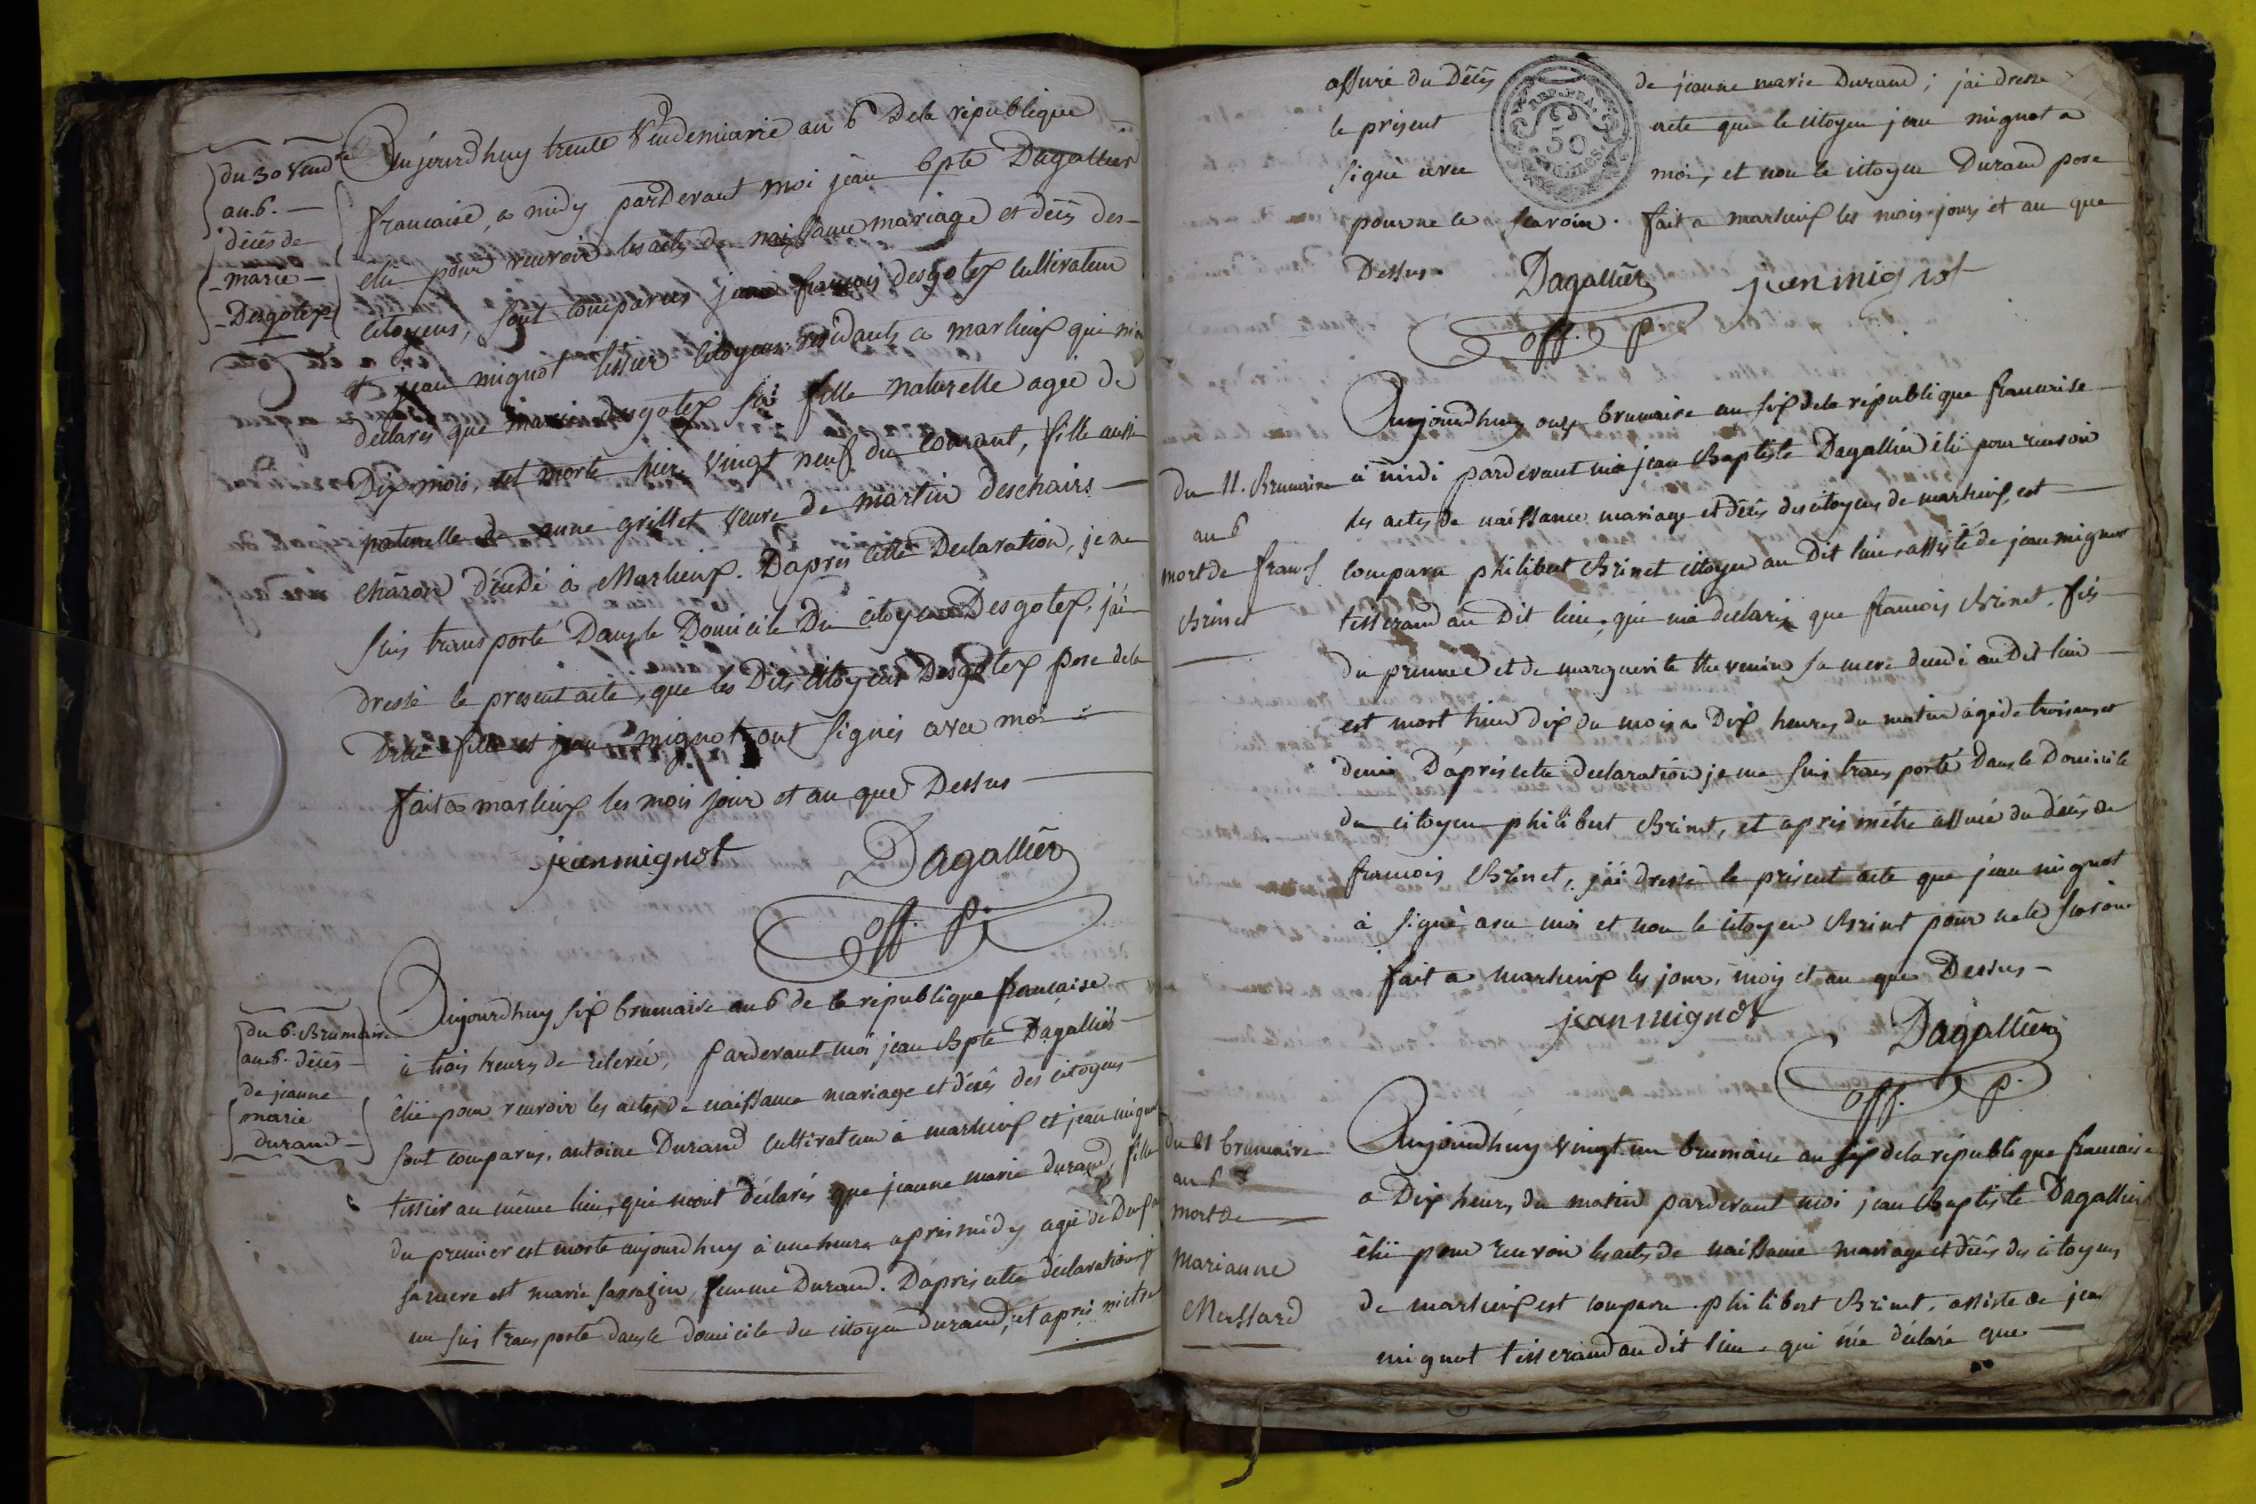 du 30 vend.re
an 6.
décès de
marie
Desgotex
Aujourdhuy trente Vendemiaire an 6 dela république
francaise, a midy pardevant moi jean bpte Dagallier
elu pour recevoir les actes de naissance mariage et décès des
citoyens, sont comparus jean françois desgotex cultivateur
et jean mignot tissier citoyens residants a marlieux qui m'ont
déclarés que marie desgotex sa fille naturelle agée de
Dix mois, est morte hier vingt neuf du courant, fille aussi
naturelle de anne grillet veuve de martin deschairs
charon décédé à Marlieux. Dapres cette Declaration, je me
suis transporté Dans le Domicile Du citoyen Desgotex, j'ai
dressé le present acte, que les Dits citoyens Desgotex pere dela
Dite fille et jean mignot ont signés avec moi
fait a marlieux les mois jour et an que Dessus
jean mignot Dagallier
off. p.
du 6. Brumaire
an 6. décès
de jeanne
marie
durand
Aujourdhuy six brumaire an 6 de la république francaise
à trois heures de relevée, pardevant moi jean Bpte Dagallier
élu pour recevoir les actes de naissance mariage et décès des citoyens
sont comparus, antoine Durand cultivateur à marlieux et jean mignot
tissier au même lieu, qui m'ont déclarés que jeanne marie durand, fille
du premier est morte aujourdhuy à une heure apres midy agée de Deux
sa mere est marie sarrazin, femme Durand. Dapres cette déclaration, je
me suis transporté dans le domicile du citoyen durand, et apres m'etre
assuré du Décès de jeanne marie Durand; j'ai dressé
REP. FRA.
50
le present acte que le citoyen jean mignot a
signé avec moi, et non le citoyen Durand pere
pour ne le scavoir. fait a marlieux les mois jours et an que
Dessus Dagallier jean mignot
off. p
du 11. Brumaire
an 6
mort de franc.s
Brinet
Aujourdhuy onze brumaire an six dela république francaise
à midi pardevant moi jean Baptiste Dagallier élu pour recevoir
les actes de naissance mariage et décès des citoyens de marlieux, est
comparu philibert Brinet citoyen au Dit lieu, assisté de jean mignot
tisserand au Dit lieu, qui m'a declaré que francois Brinet, fils
du premier et de marguerite thevenin sa mere decedé au Dit lieu
est mort hier dix du mois a Dix heures du matin agé de trois ans et
demi D'après cette declaration je me suis transporté dans le Domicile
du citoyen philibert Brinet, et après m'être assuré du décès de
francois Brinet, j'ai dressé le présent acte que jean mignot
à signé avec moi et non le citoyen Brinet pour ne le scavoir
fait a marlieux les jour, mois et an que Dessus
jean mignot Dagallier
off. p.
du 21 brumaire
an 6
mort de
Marianne
Mussard
Aujourdhuy vingt un brumaire an six dela république francaise
a Dix heures du matin pardevant moi jean Baptiste Dagallier
élu pour recevoir les actes de naissance mariage et décès des citoyens
de marlieux est comparu philibert Brinet, assisté de jean
mignot tisserand au dit lieu qui m'a déclaré que